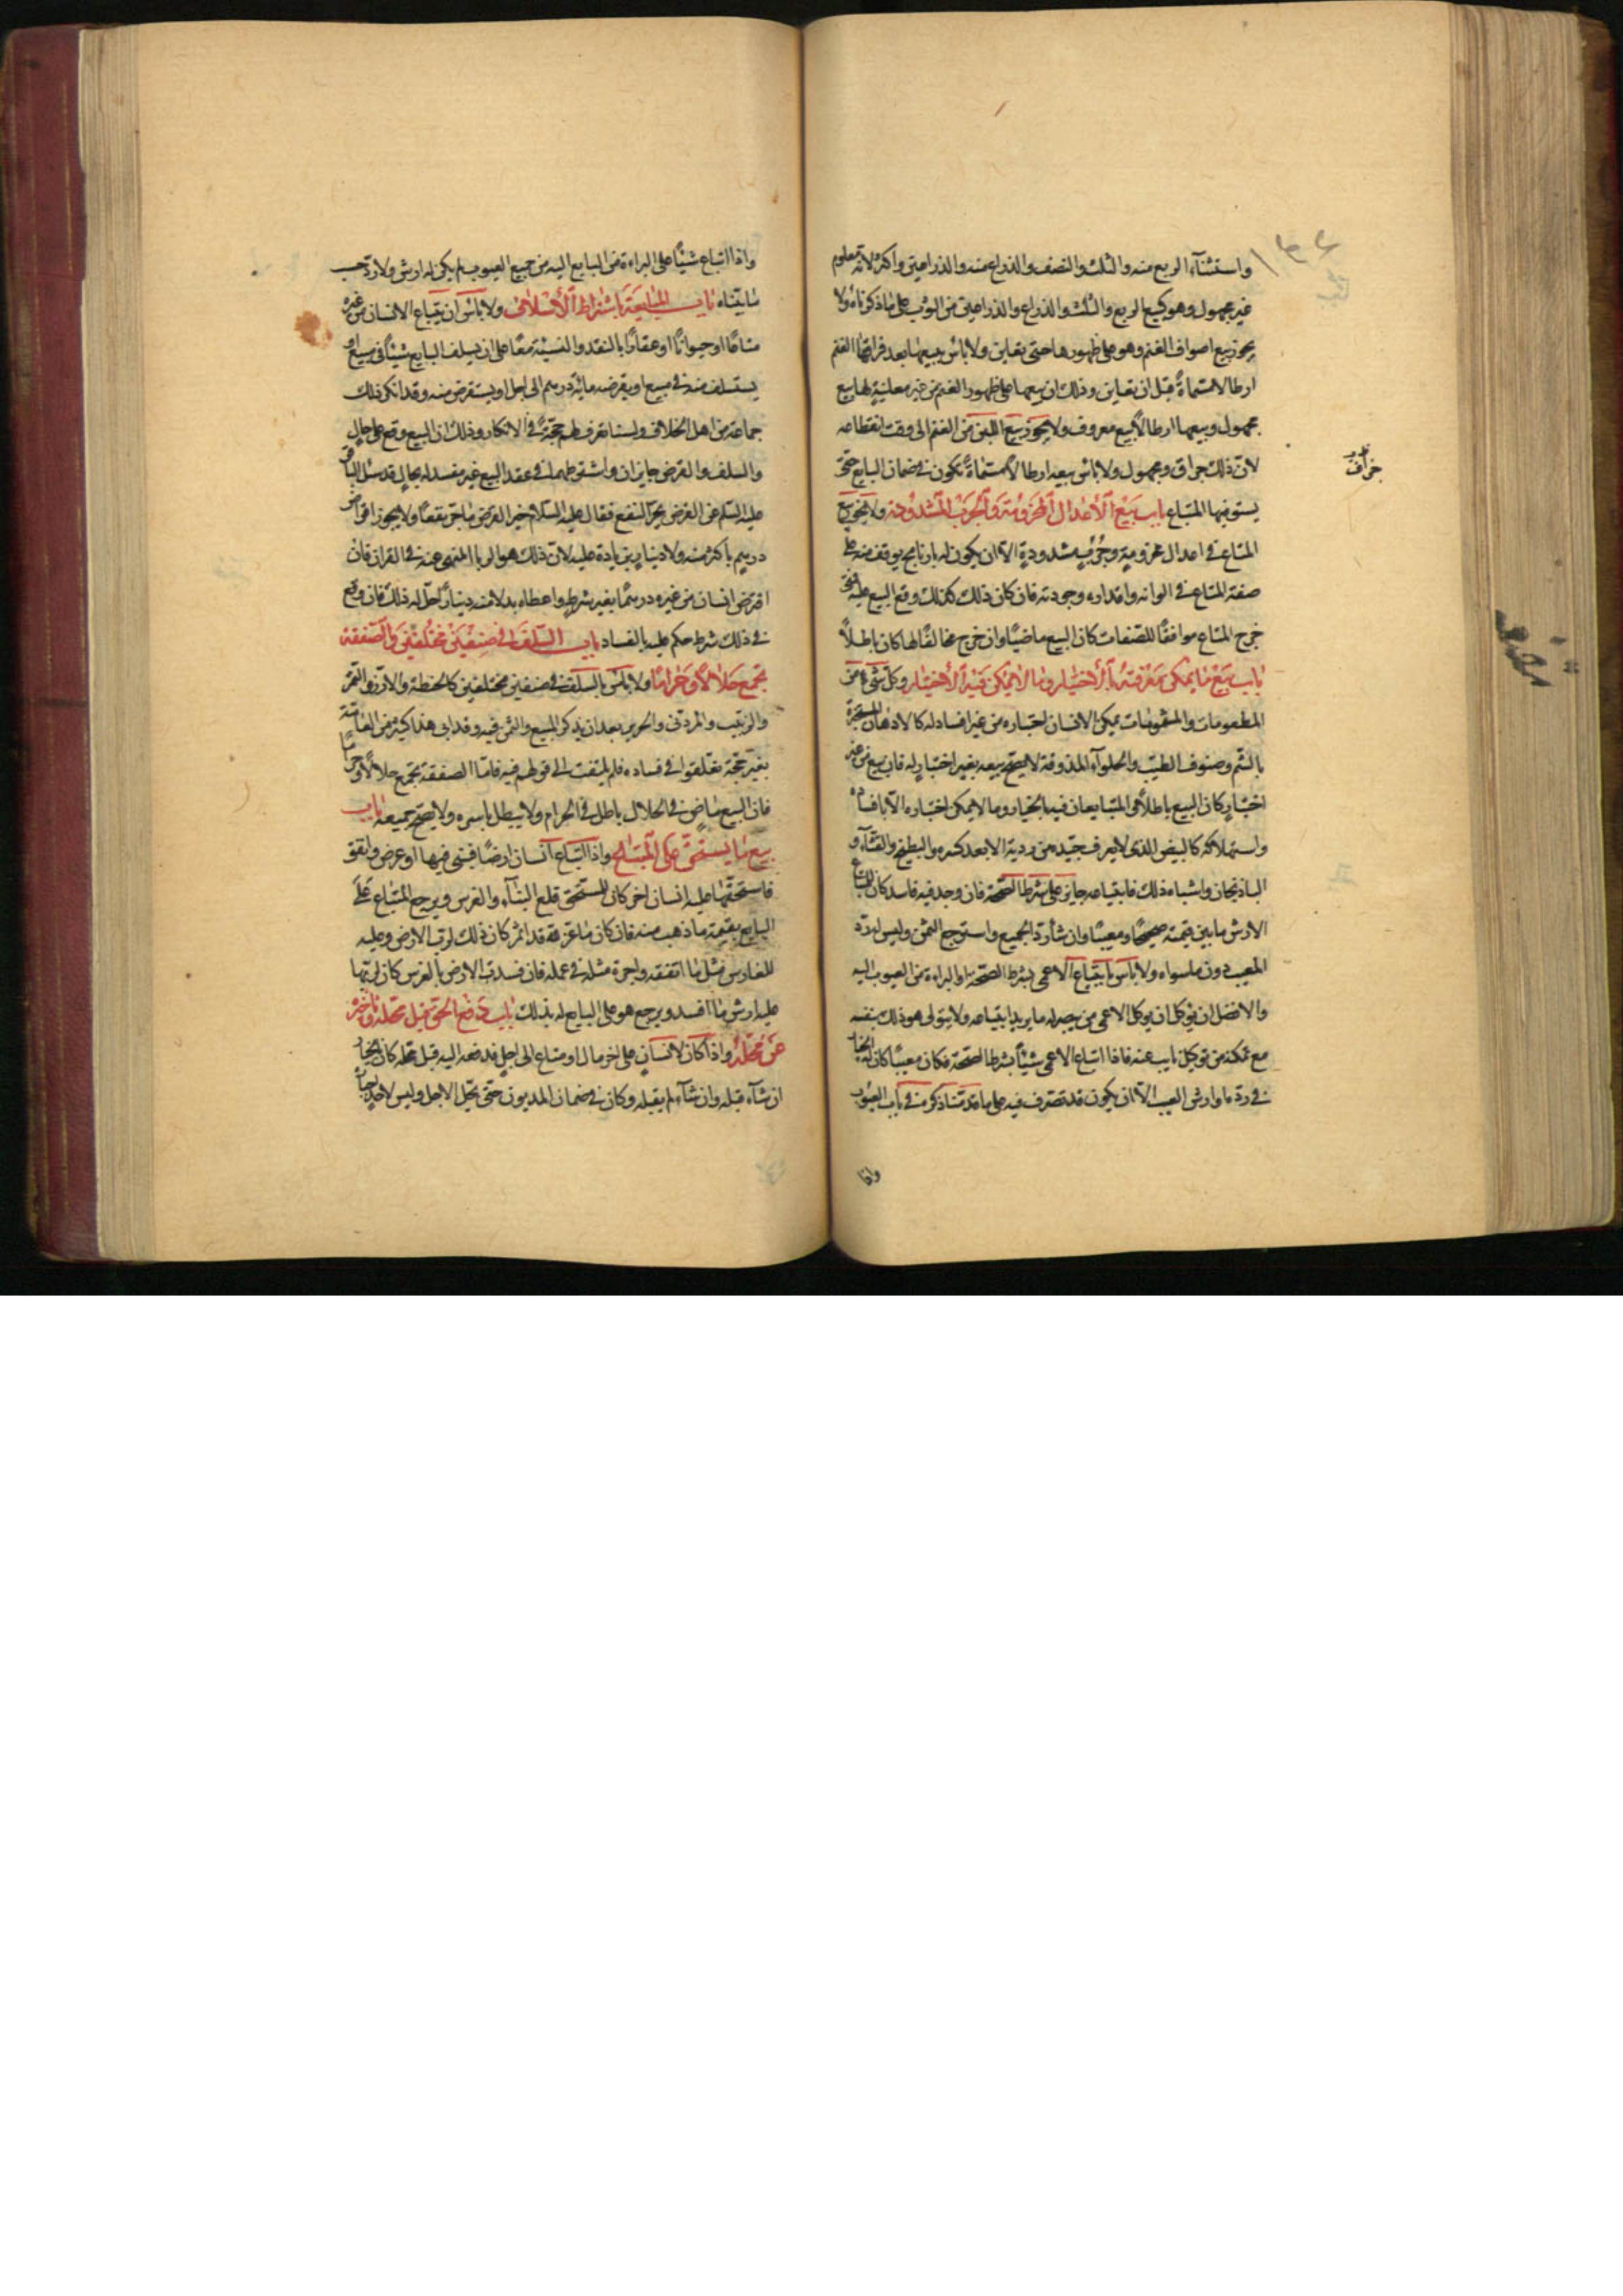 واستثنآء الربع منه والثلث والنصف والذراع منه والذراعين واكثر لانه معلوم
غير مجهول وهو كبيع الربع والثلث والذراع والذراعين من الثوب على ما ذكرناه ولا
يجوز بيع اصواف الغنم وهو على ظهورها حتى يعاين ولا باس ببيعها بعد
ارطالا مسماة قبل ان يعاين وذلك ان بيعها على ظهور الغنم من غير معاينة لها بيع
مجهول وبيعها ارطالاً بيع معروف ولا يجوز بيع اللبن من الغنم الى وقت انقطاعه
لان ذلك جزاف ومجهول ولا باس ببيعه ارطالاً مسماةً تكون في ضمان البايع حتى
يستوفيها المبتاع باب بيع الأعدال المحزومة والجرب المشدودة ولا يجوز بيع
المتاع في اعدال محزومةٍ وجُرُبٍ مشدودةٍ الا ان يكون له بارنامج يوقفه منه على
صفة المتاع في الوانه واقداره وجودته فان كان ذلك كذلك وقع البيع عليه فمتى
خرج المتاع موافقًا للصفات كان البيع ماضيًا وان خرج مخالفًا لها كان باطلاً
باب بيع ما يمكن معرفته بالأختبار وما لا يمكن فيه الأختبار وكل شىء من
المطعومات والمشمومات يمكن الانسان اختباره من غير افساد له كالادهان المستخبرة
بالشم وصنوف الطيب والحلوآء المذوقة لا يصح بيعه بغير اختبارٍ له فان بيع من غير
اختبارٍ كان البيع باطلاً والمتبايعان فيه بالخيار وما لا يمكن اختباره الا بافساده
واستهلاكه كالبيض الذى لا يعرف جيده من رديه الا بعد كسره والبطيخ والقثآء و
الباذنجان واشباه ذلك فابتياعه جايز على شرط الصحة فان وجد فيه فاسد كان للمبتاع
الارش ما بين قيمته صحيحًا ومعيبًا وان شآء رد الجميع واسترجع الثمن وليس له رد
المعيب دون ما سواه ولا باس بابتياع الاعمى بشرط الصحة او البراءة من العيوب اليه
والافضل ان يوكل الاعمى من يبصر له ما يريد ابتياعه ولا يتولى هو ذلك بنفسه
مع تمكنه من توكل نايب عنه فاذا ابتاع الاعمى شيئًا بشرط الصحة فكان معيبًا كان له الخيار
في رده او ارش العيب الا ان يكون قد تصرف فيه على ما قدمنا ذكره في باب العيوب
واذا
جزاف
واذا ابتاع شيئًا على البراءة من البايع اليه من جميع العيوب لم يكن له ارش ولا رد حسب
ما بيناه باب المبايعة باشتراط الأسلاف ولا باس ان يبتاع الانسان من غيره
متاعًا او حيوانًا او عقارًا بالنقد والنسيئة معًا على ان يسلف البايع شيئًا في مبيع او
يستسلف منه في مبيع او يقرضه مائة درهم الى اجل او يستقرض منه وقد انكر ذلك
جماعة من اهل الخلاف ولسنا نعرف لهم حجةً في الانكار وذلك ان البيع وقع على حلالٍ
والسلف والقرض جايزان واشتراطهما في عقد البيع غير مفسد له بحالٍ قد سئل الباقر
عليه السلم عن القرض يجر النفع فقال عليه السلام خير القرض ما جر نفعًا ولا يجوز اقراض
درهمٍ باكثر منه ولا دينارٍ بزيادة عليه لان ذلك هو الربا المنهى عنه في القران فان
اقترض انسان من غيره درهمًا بغير شرطٍ واعطاه بدلا منه دينارًا حل له ذلك فان وقع
في ذلك شرط حكم عليه بالفساد باب السلف في صنفين مختلفين والصفقة
تجمع حلالاً وحرامًا ولا باس بالسلف في صنفين مختلفين كالحنطة والارز والتمر
والزبيب والمروى والحرير بعد ان يذكر المبيع والثمن فيه وقد ابى هذا كثير من العامة
بغير حجة تعلقوا في فساده فلم يلتفت الى قولهم فيه فاما الصفقة تجمع حلالاً وحرامًا
فان البيع ماضٍ في الحلال باطل في الحرام ولا يبطل باسره ولا يصح جميعه باب
بيع ما يستحق على المبتاع واذا ابتاع انسان ارضًا فبنى فيها او غرس وانفق
فاستحقها عليه انسان اخر كان للمستحق قلع البنآء والغرس ويرجع المبتاع على
البايع بقيمة ما ذهب منه فان كان ما غرسه قد اثمر كان ذلك لرب الارض وعليه
للغارس مثل ما انفقه واجرة مثله في عمله فان فسدت الارض بالغرس كان لربها
عليه ارش ما افسد ويرجع هو على البايع له بذلك باب دفع الحق قبل محله وتاخيره
عن محله واذا كان لانسانٍ على اخر مال او متاع الى اجلٍ فدفعه اليه قبل محله كان بالخيار
ان شآء قبله وان شآء لم يقبله وكان في ضمان المديون حتى يحل الاجل وليس لاحدٍ